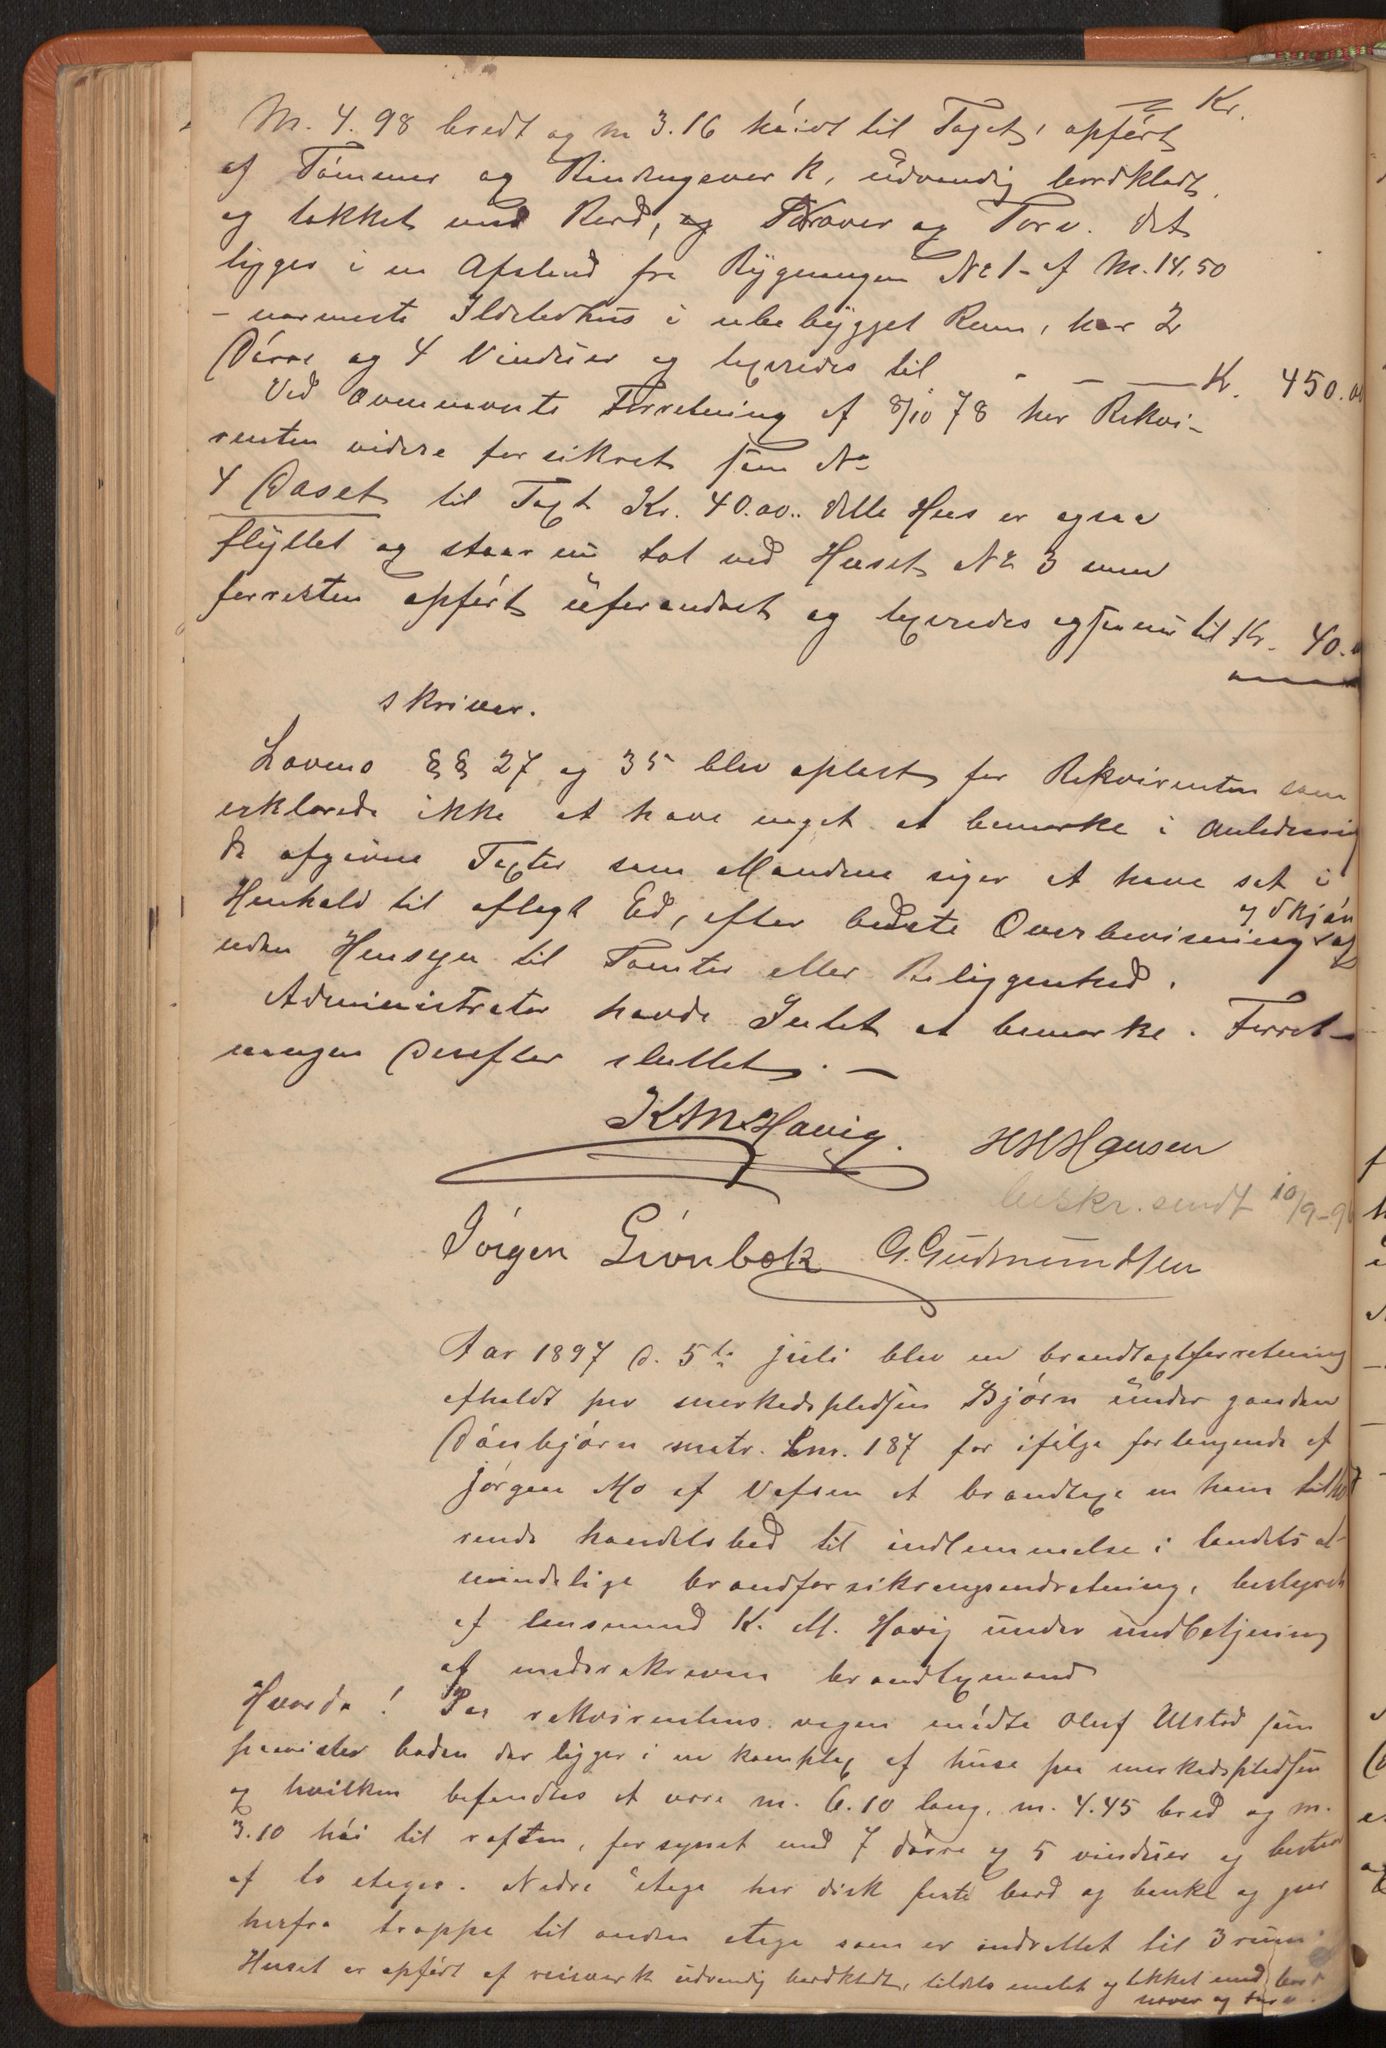 Kr.
M. 4.98 bredt og m 3.16 høidt til Taget, opført
af Tømmer og Bindingsverk, udvendig bordklædt
og tækket med Bord, Næver og Torv. Det
ligger i en Afstand fra Bygningen No 1 af M. 14,50
– nærmeste Ildstedhus i ubebygget Rum, har 2
Dørre og 4 Vinduer og taxeredes til - — — Kr. 450.00
Ved ovennævnte Forretning af 8/10 78 har Rekvi-
renten videre forsikret som No
4 Baset til Taxt Kr. 40.00. Dette Hus er ogsaa
flyttet og staar nu tæt ved Huset No 3 men
forresten opført uforandret og taxeredes ogsaa nu til Kr. 40.
skriver.
Lovens §§ 27 og 35 blev oplæst for Rekvirenten som
erklærede ikke at have noget at bemærke i Anledning
de afgivne Taxter som Mændene siger at have sat i
Henhold til aflagt Ed, efter bedste Overbevisning og Skjøn og
uden Hensyn til Tomter eller Beliggenhed.
Administrator havde Intet at bemærke. Forret-
ningen derefter sluttet. —
K M Havig. H H Hansen
beskr. sendt 10/9-9
Jørgen Grønbæk G. Gudmundsen
Aar 1897 d. 5te juli blev en brandtaxtforretning
afholdt paa markedspladsen Bjørn under gaarden
Dønbjørn matr. Lnr. 187 for ifølge forlangende af
Jørgen Mo af Vefsen at brandtaxe en ham tilhø
rende handelsbod til indlemmelse i landets al-
mindelige brandforsikringsindretning, bestyret
af lensmand K. M. Havig under medbetjening
af underskrevne brandtaxmænd
Hvorda! Paa rekvirentens vegne mødte Oluf Ulstad som
paaviste boden der ligger i en komplex af huse paa markedspladsen
og hvilken befandtes at være m. 6.10 lang, m. 4.45 bred og m.
3.10 høi til raften, forsynet med 7 dørre og 5 vinduer og bestaar
af to etager. Nedre etage har disk faste bord og bænke og gaar
herfra trappe til anden etage som er indrettet til 3 rum.
Huset er opført af reisverk udvendig bordklædt, tildels malet og tækket med bord
næver og torv.